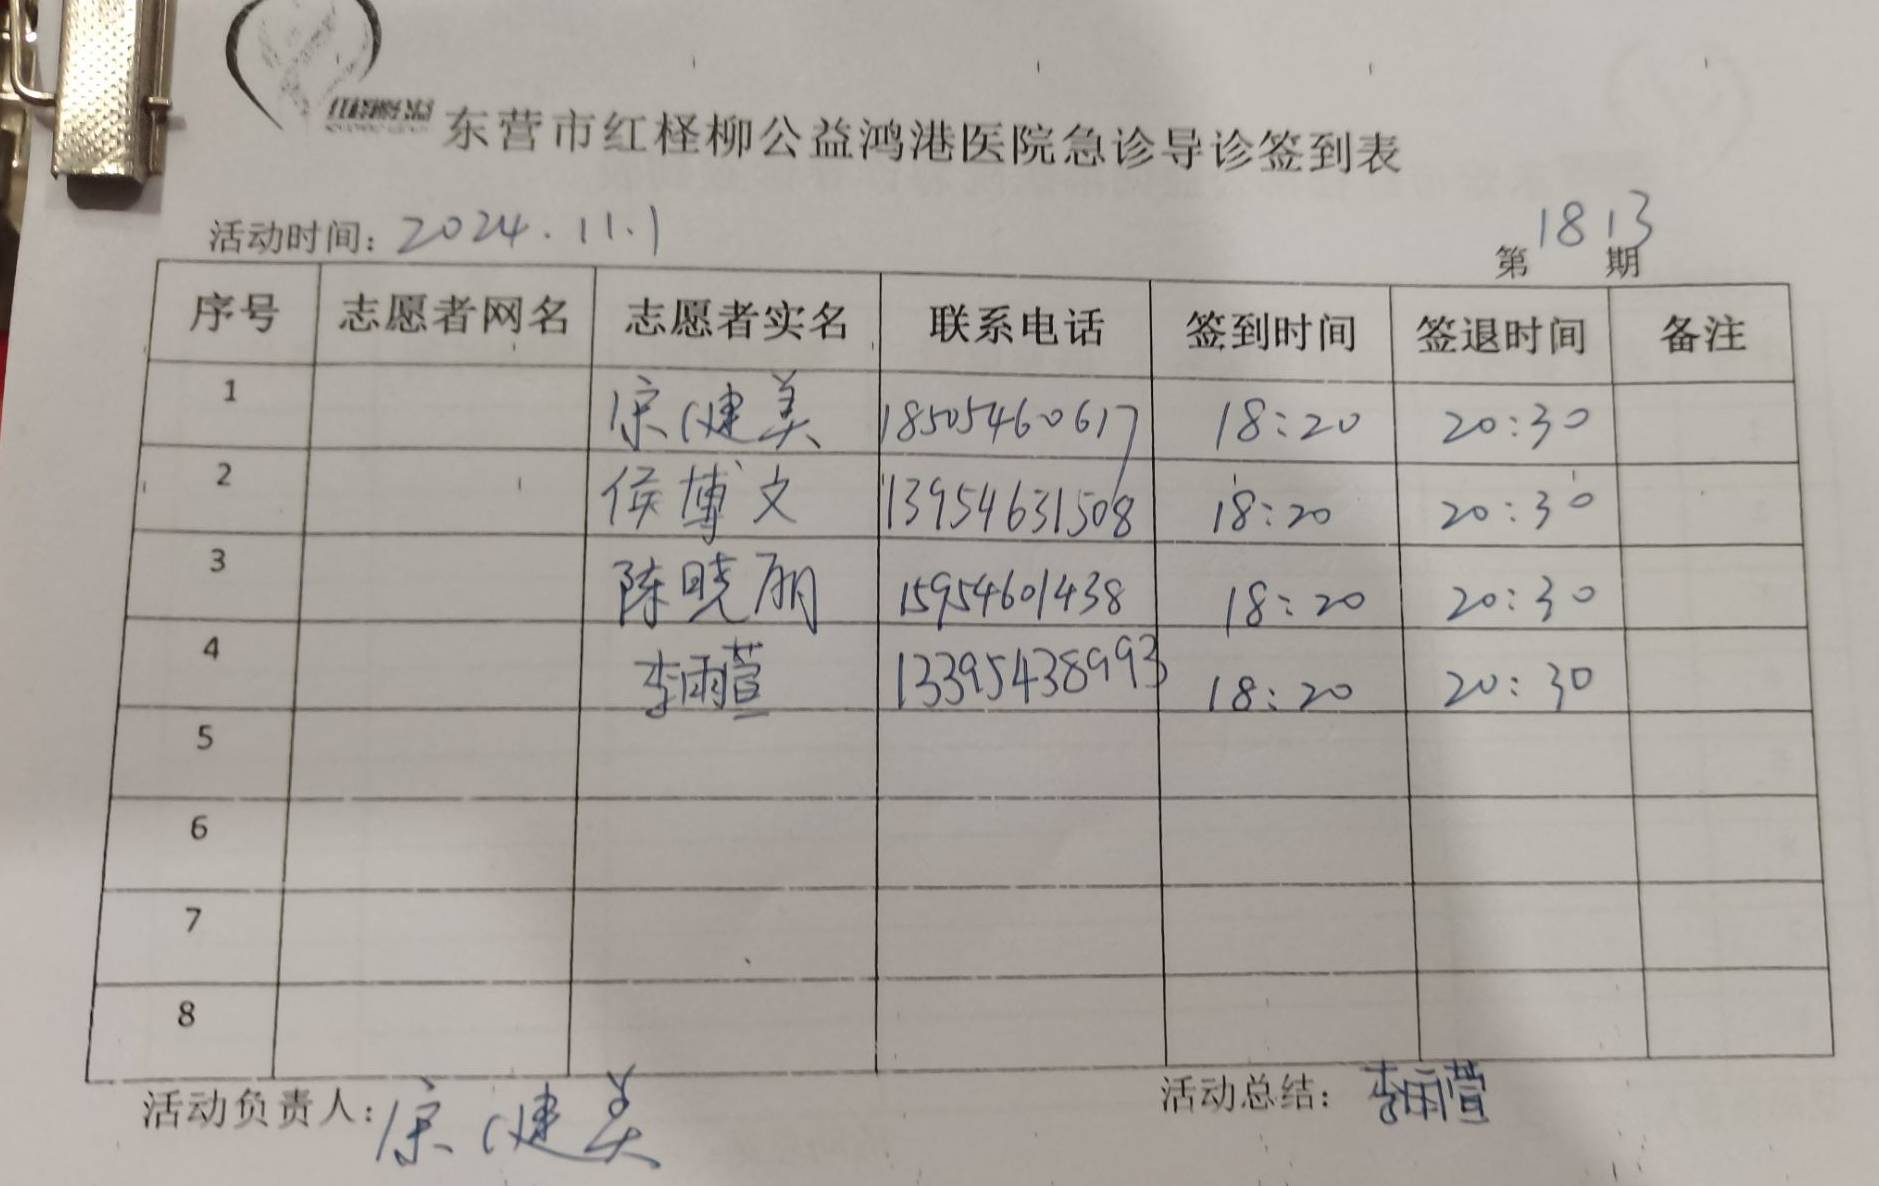 东营市红柽柳公益鸿港医院急诊导诊签到表
活动时间：2024.11.1
第1813期
序号 志愿者网名 志愿者实名 联系电话 签到时间 签退时间 备注
1 宗健美 18505460617 18:20 20:30
2 侯博文 13954631508 18:20 20:30
3 陈晓丽 15954601438 18:20 20:30
4 李雨萱 13395438993 18:20 20:30
5
6
7
8
活动负责人：宗健美 活动总结：李雨萱